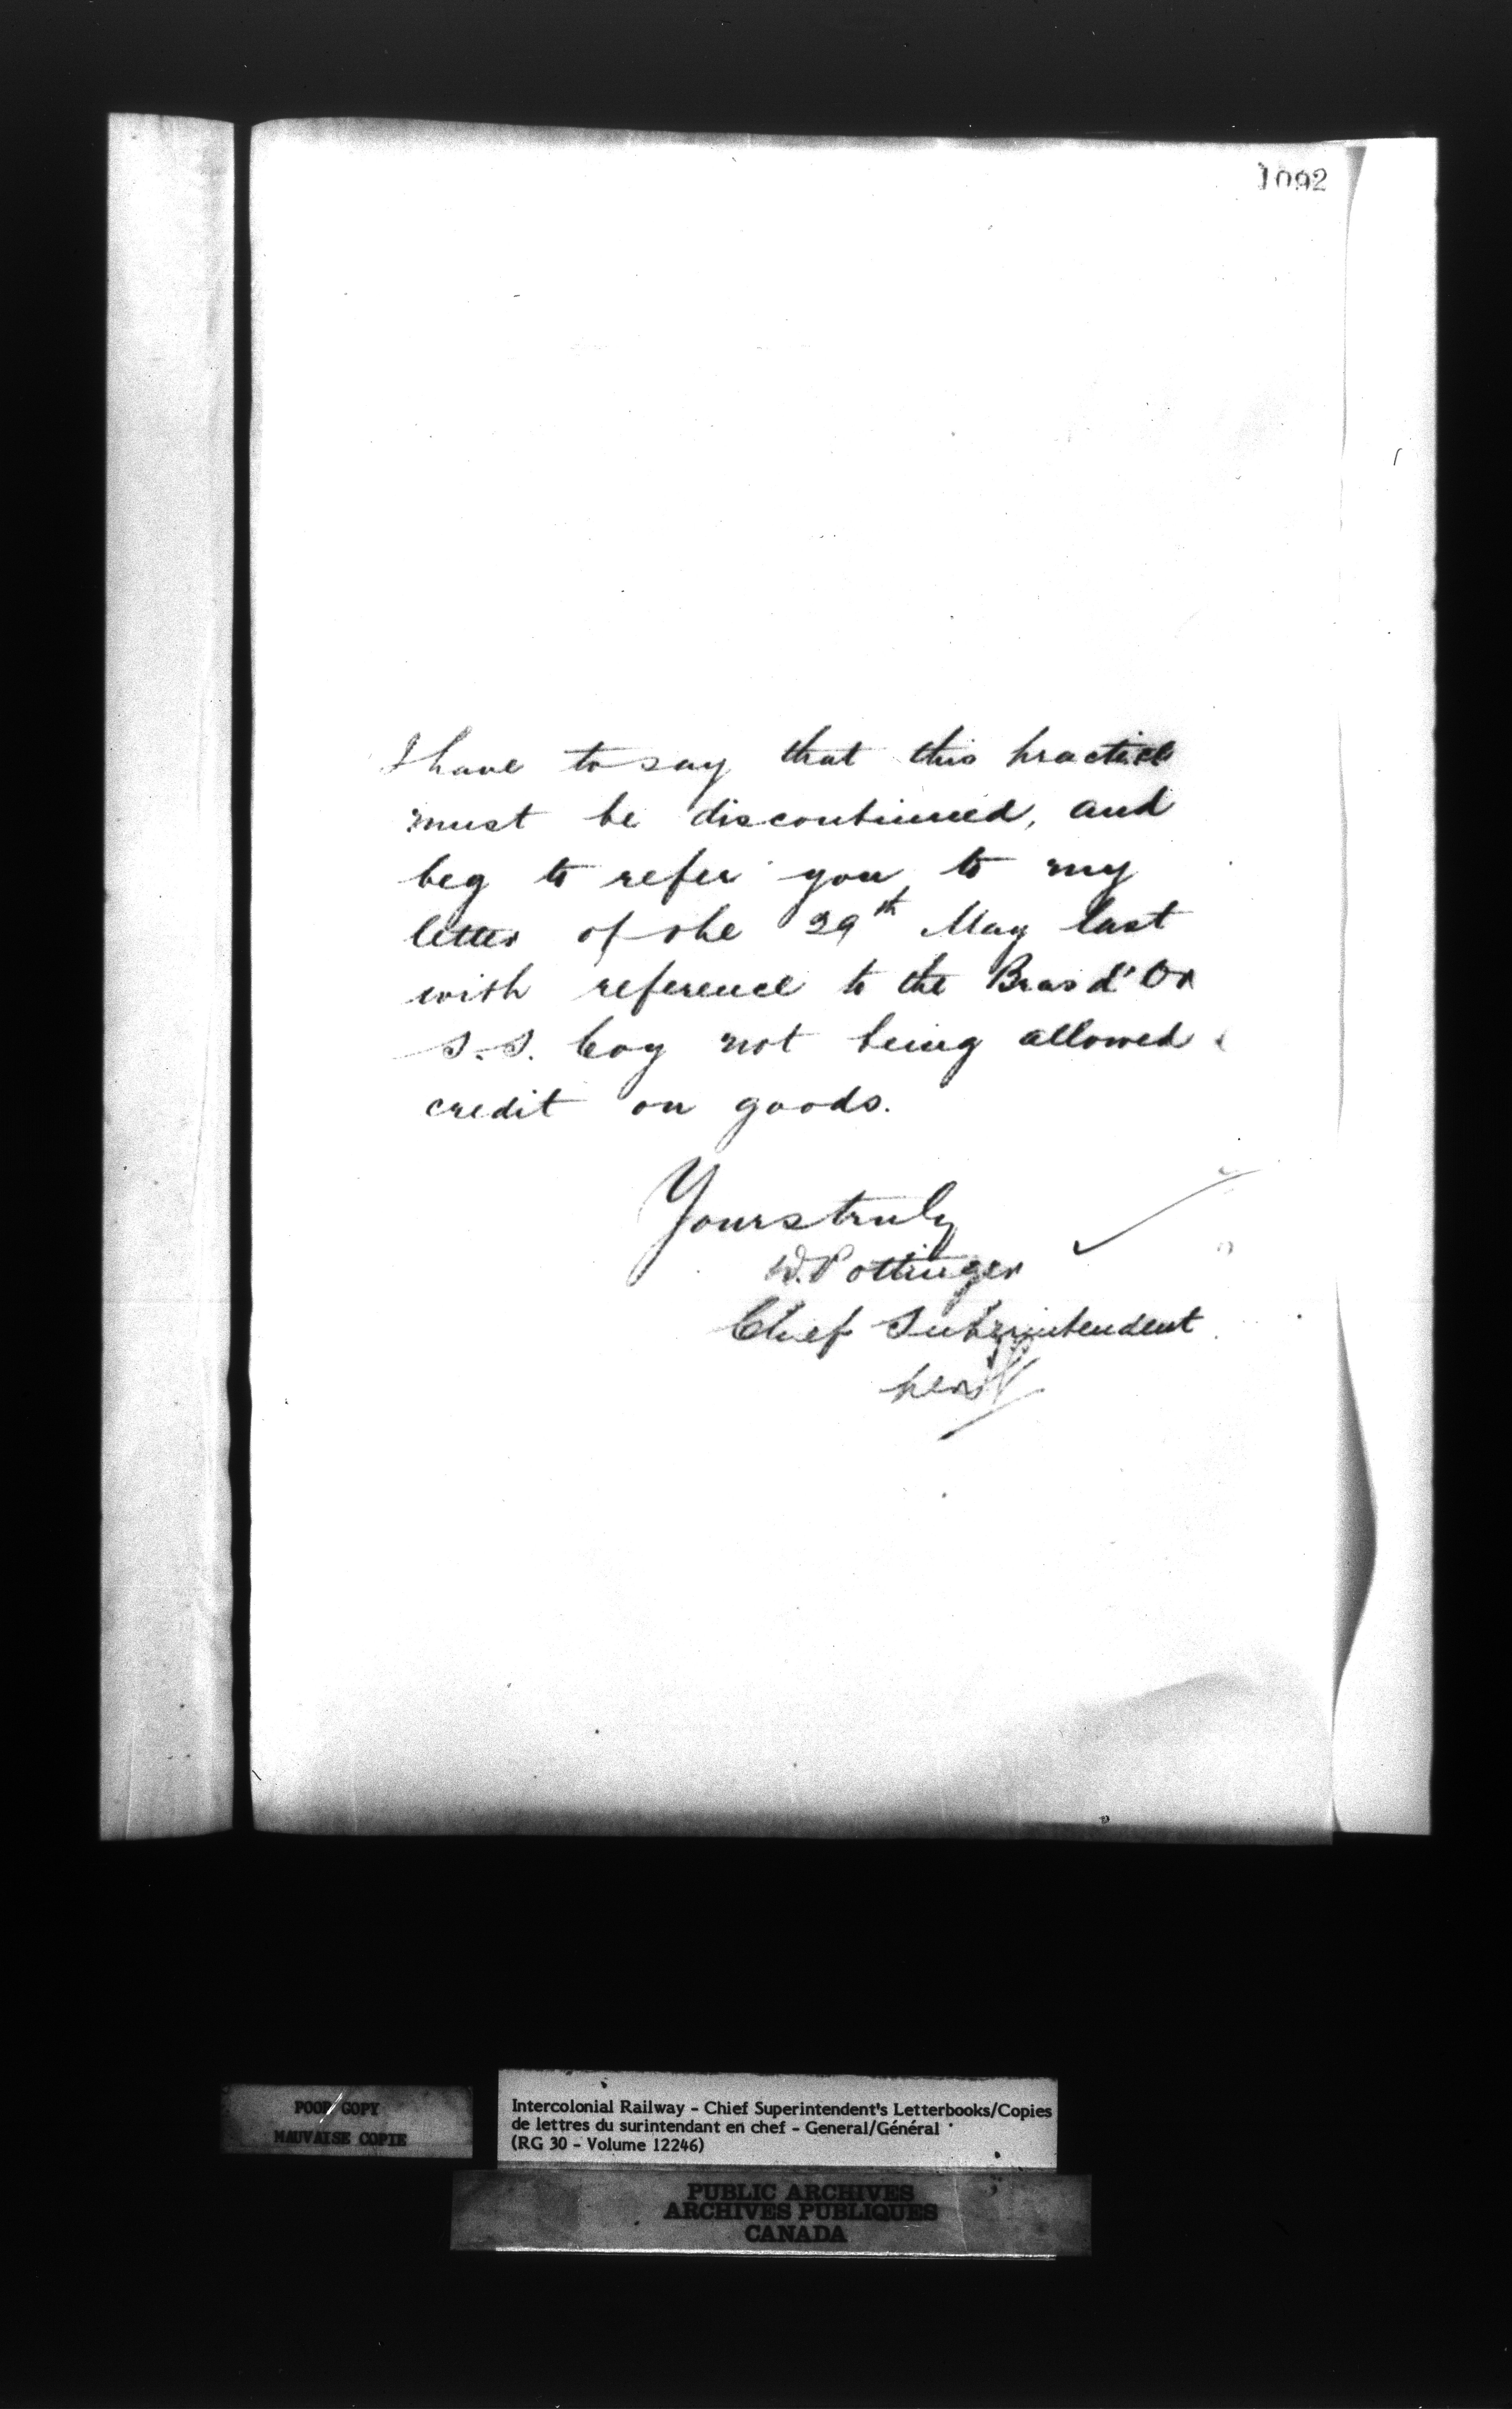 1092
I have to say that this practice
must be discontinued, and
beg to refer you to my
letter of the 29th May last
with reference to the Bras d'Or
S.S. Coy not being allowed
credit on goods.
Yours truly
D. Pottinger
Chief Superintendent
per
POOR COPY
MAUVAISE COPIE
Intercolonial Railway - Chief Superintendent's Letterbooks/Copies
de lettres du surintendant en chef - General/Général
(RG 30 - Volume 12246)
PUBLIC ARCHIVES
ARCHIVES PUBLIQUES
CANADA